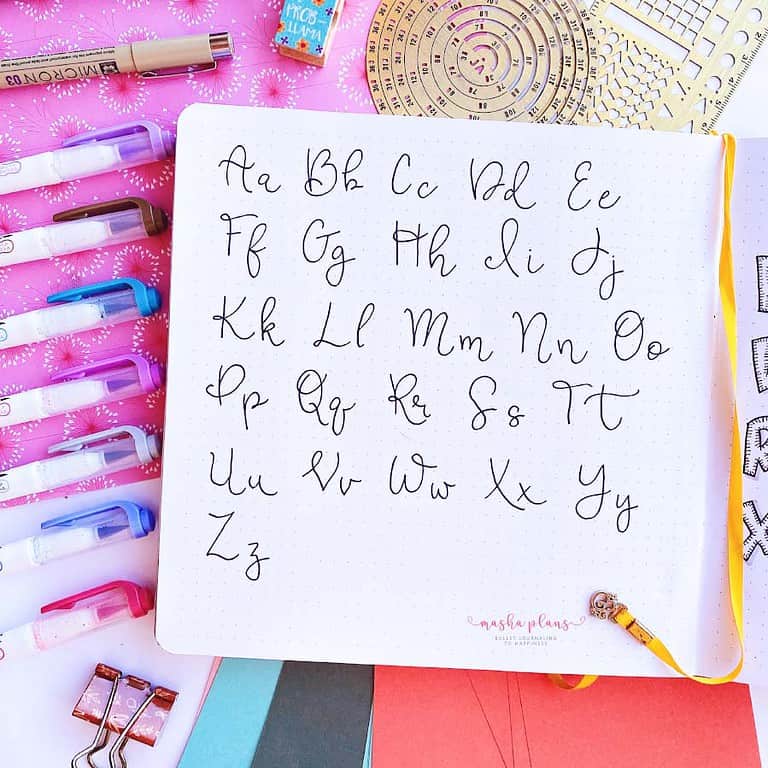 PROB-
LLAMA
MICRON 03
Aa Bb Cc Dd Ee
Ff Gg Hh Ii Jj
Kk Ll Mm Nn Oo
Pp Qq Rr Ss Tt
Uu Vv Ww Xx Yy
Zz
masha plans
BULLET JOURNALING
TO HAPPINESS
R
X